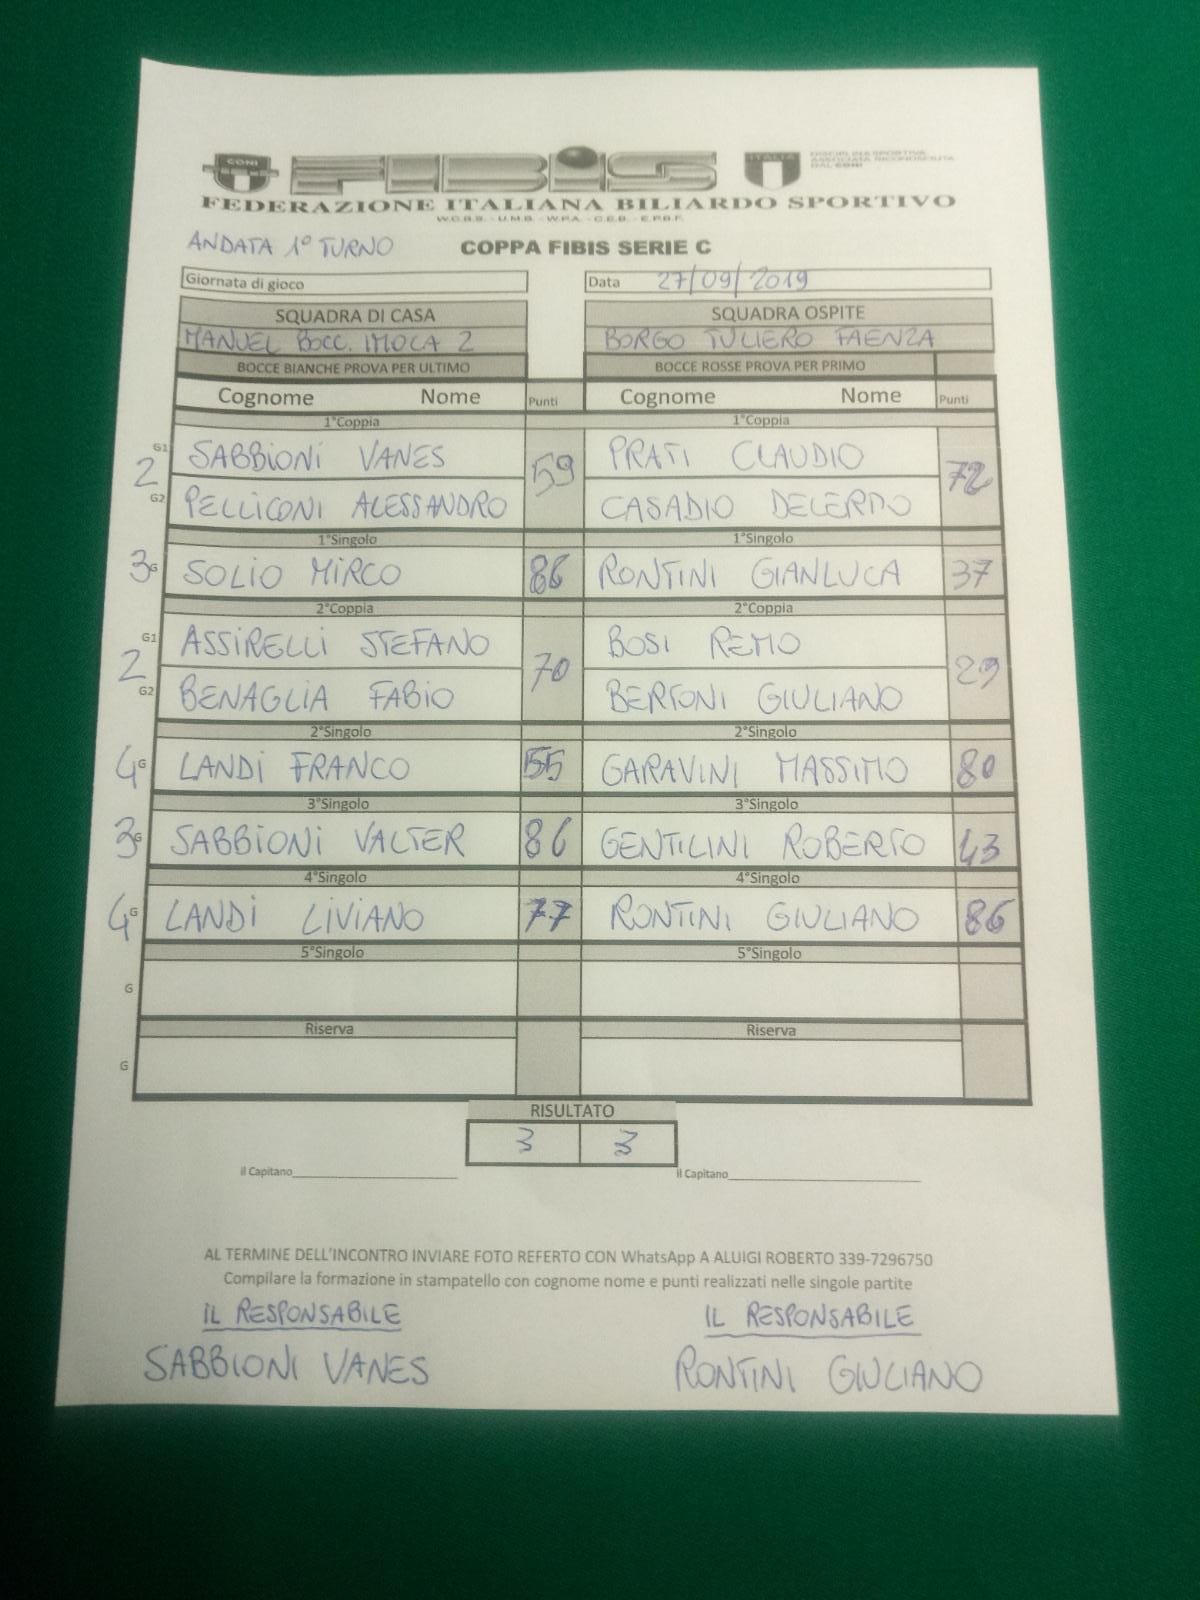 CONI FIBiS ITALIA DISCIPLINA SPORTIVA
ASSOCIATA RICONOSCIUTA
DAL CONI
FEDERAZIONE ITALIANA BILIARDO SPORTIVO
W.C.B.S. - U.M.B. - W.P.A. - C.E.B. - E.P.B.F.
ANDATA 1° TURNO COPPA FIBIS SERIE C
Giornata di gioco Data 27/09/2019
SQUADRA DI CASA SQUADRA OSPITE
MANUEL BOCC. IMOLA 2 BORGO TULIERO FAENZA
BOCCE BIANCHE PROVA PER ULTIMO BOCCE ROSSE PROVA PER PRIMO
Cognome Nome Punti Cognome Nome Punti
1°Coppia 1°Coppia
G1 SABBIONI VANES PRATI CLAUDIO
2 59 72
G2 PELLICONI ALESSANDRO CASADIO DELERMO
1°Singolo 1°Singolo
3 G SOLIO MIRCO 86 RONTINI GIANLUCA 37
2°Coppia 2°Coppia
G1 ASSIRELLI STEFANO BOSI REMO
2 70 29
G2 BENAGLIA FABIO BERTONI GIULIANO
2°Singolo 2°Singolo
4 G LANDI FRANCO 55 GARAVINI MASSIMO 80
3°Singolo 3°Singolo
3 G SABBIONI VALTER 86 GENTILINI ROBERTO 43
4°Singolo 4°Singolo
4 G LANDI LIVIANO 77 RONTINI GIULIANO 86
5°Singolo 5°Singolo
G
Riserva Riserva
G
RISULTATO
3 3
il Capitano il Capitano
AL TERMINE DELL'INCONTRO INVIARE FOTO REFERTO CON WhatsApp A ALUIGI ROBERTO 339-7296750
Compilare la formazione in stampatello con cognome nome e punti realizzati nelle singole partite
IL RESPONSABILE IL RESPONSABILE
SABBIONI VANES RONTINI GIULIANO